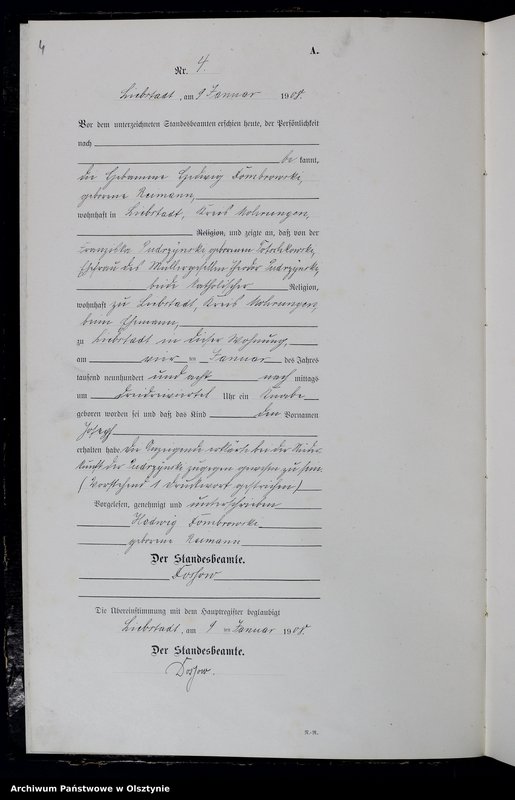 4
A.
Nr. 4.
Liebstadt, am 9 Januar 1908.
Vor dem unterzeichneten Standesbeamten erschien heute, der Persönlichkeit
nach
be kannt,
die Hebamme Hedwig Dombrowske,
geborene Neumann,
wohnhaft in Liebstadt, Kreis Mohrungen,
Religion, und zeigte an, daß von der
Franziska geborenen
Ehefrau des Müllergesellen
beide katholischer Religion,
wohnhaft zu Liebstadt, Kreis Mohrungen,
beim Ehemann,
zu Liebstadt in dieser Wohnung,
am vier ten Januar des Jahres
tausend neunhundert und acht nach mittags
um dreidreiviertel Uhr ein Knabe
geboren worden sei und daß das Kind den Vornamen
Joseph
erhalten habe. Die Anzeigende erklärte bei der Nieder-
kunft der zugegen gewesen zu sein.
(Vorstehend 1 Druckwort gestrichen)
Vorgelesen, genehmigt und unterschrieben
Hedwig Dombrowske
geborene Neumann
Der Standesbeamte.
Die Übereinstimmung mit dem Hauptregister beglaubigt
Liebstadt, am 9 ten Januar 1908.
Der Standesbeamte.
N.-R.
Archiwum Państwowe w Olsztynie